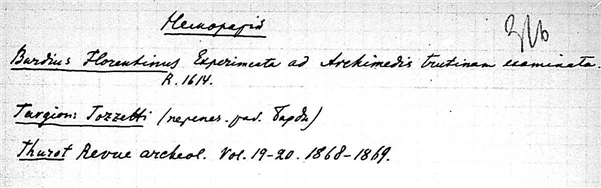 316
Bardius Florentinus Experimenta ad Archimedis trutinam examinata.
R. 1614.
Targioni Tozzetti (перепеч. раб. Барди)
Thurot Revue archéol. Vol. 19-20. 1868-1869.